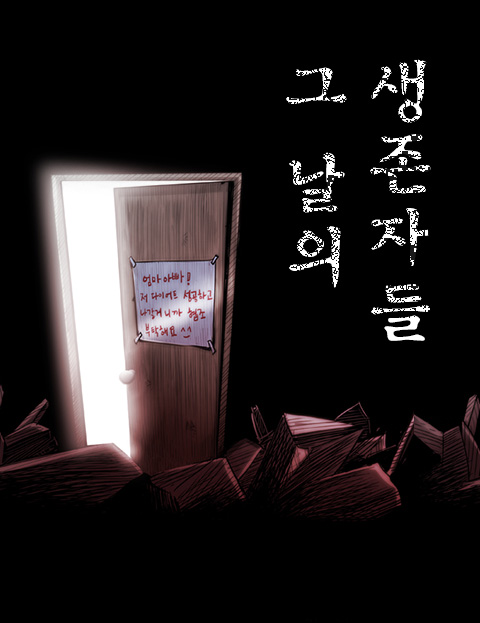 그 날의
생존자들
엄마아빠!
저 다이어트 성공하고
나갈게 니까 협조
부탁해요 ^^